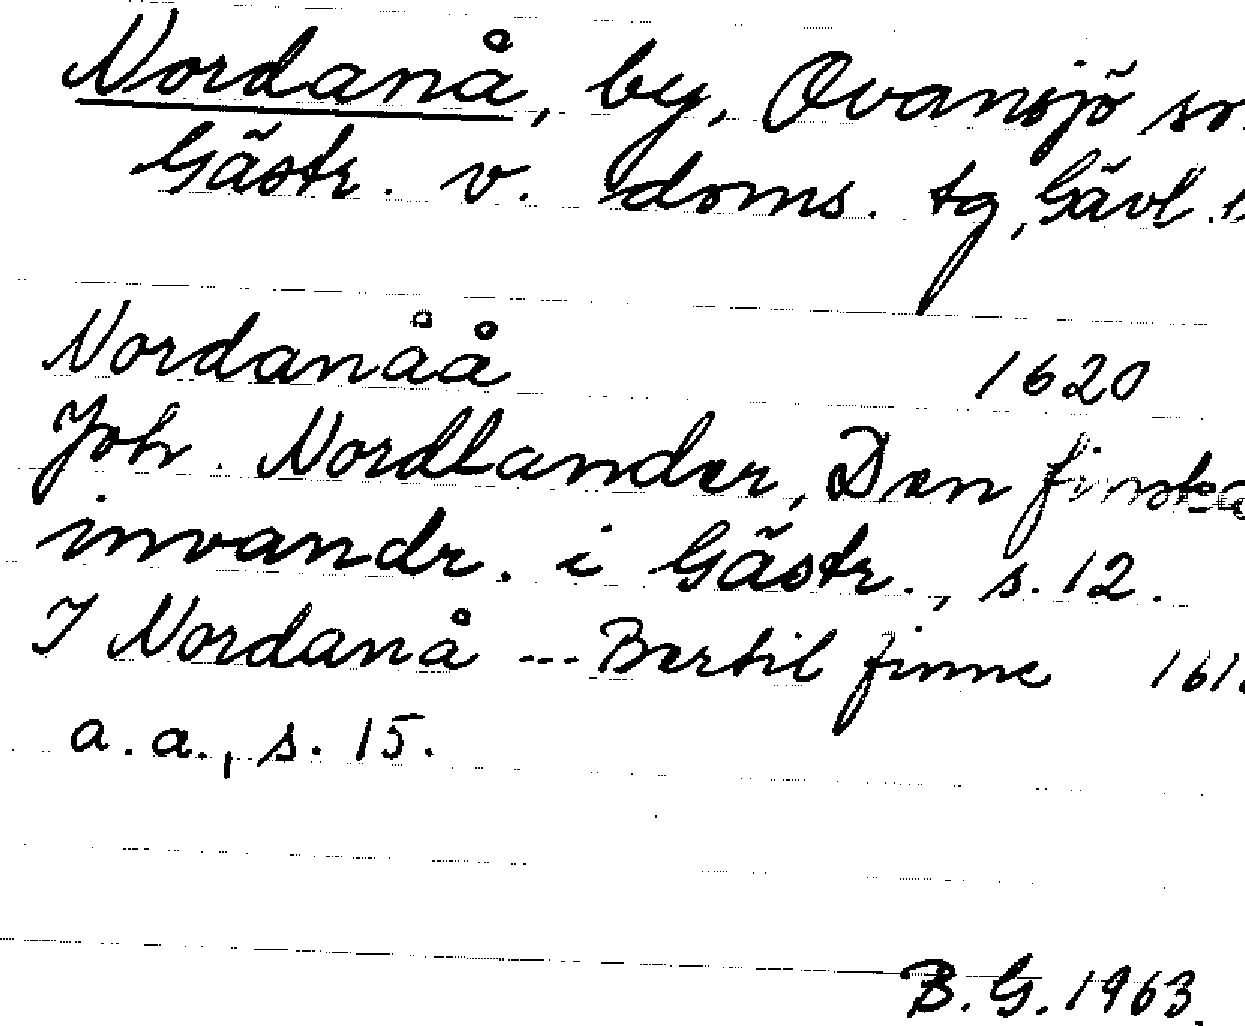 Nordanå, by, Ovansjö sn
Gästr. v. doms. tg, Gävl.
Nordanåå 1620
Joh. Nordlander, Den finska
invandr. i Gästr., s. 12.
I Nordanå --- Bertil finne 161
a.a., s. 15.
B.G. 1963.